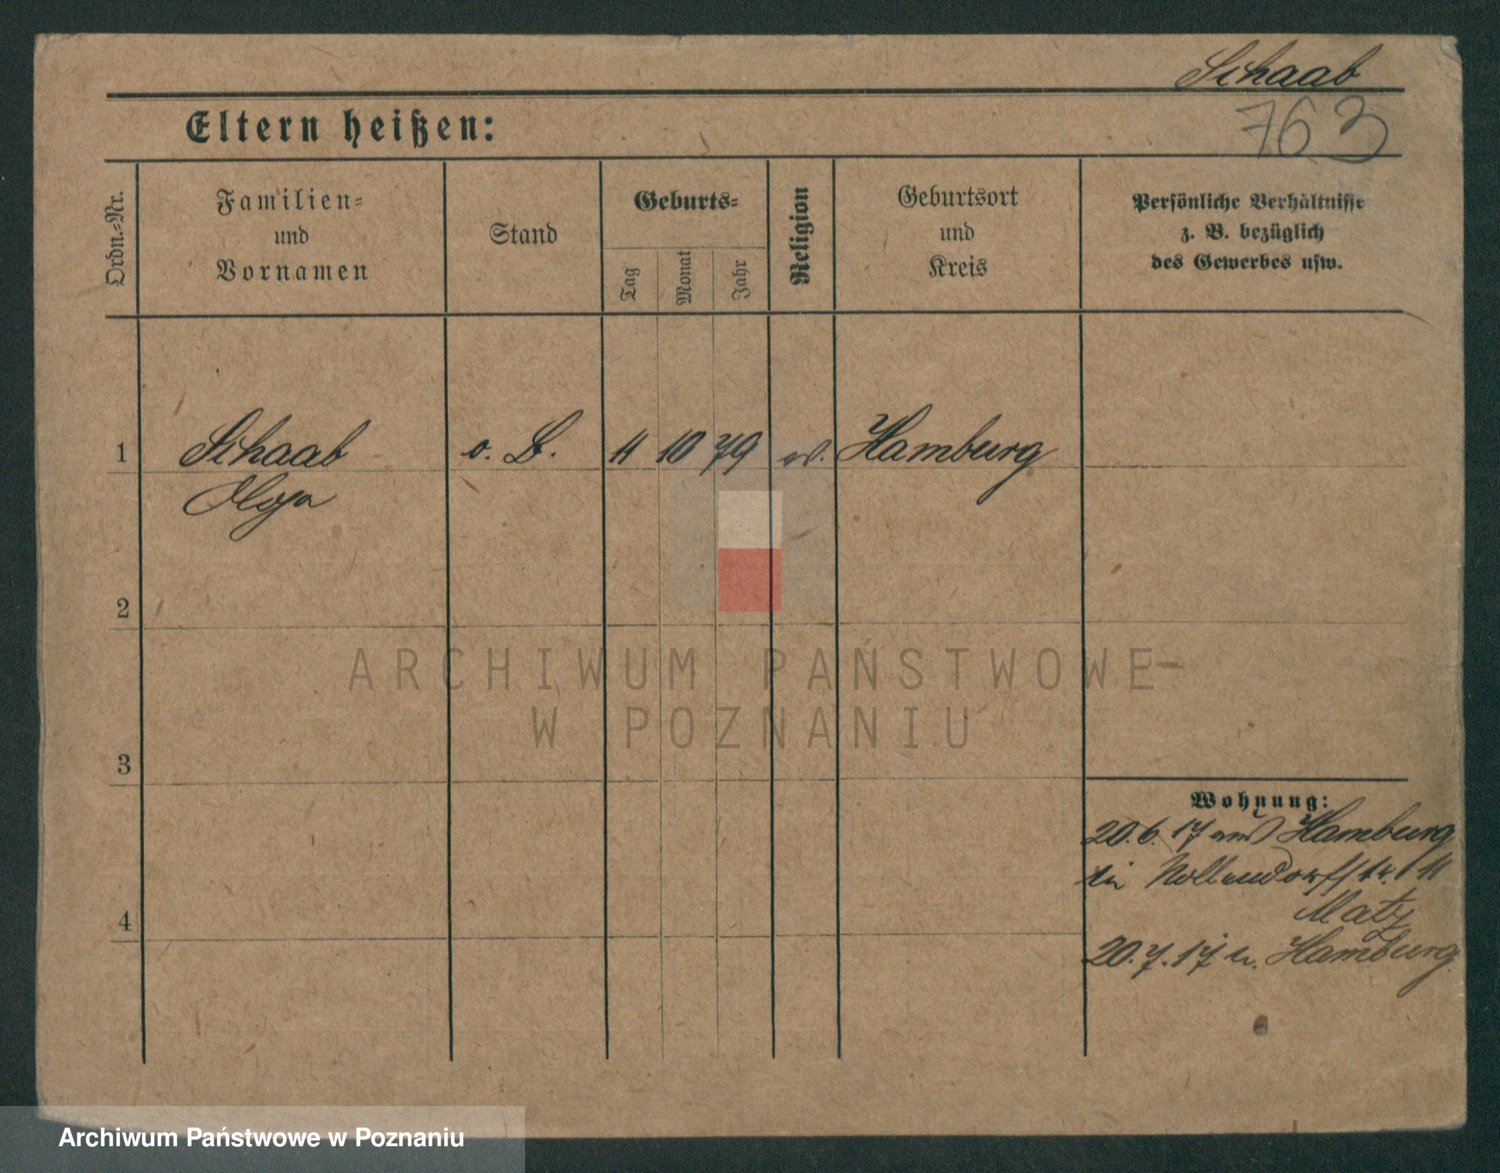 Schaab
763
Eltern heißen:
Ordn.=Nr.
Familien=
und
Vornamen
Stand
Geburts=
Tag
Monat
Jahr
Religion
Geburtsort
und
Kreis
Persönliche Verhältnisse
z. B. bezüglich
des Gewerbes usw.
1 Schaab o. B. 11 10 79 ev. Hamburg
Olga
2
3
4
Wohnung:
20.6.17 aus Hamburg
Nollendorfstr. 11
Matz
20.7.17 n. Hamburg.
ARCHIWUM PAŃSTWOWE
W POZNANIU
Archiwum Państwowe w Poznaniu